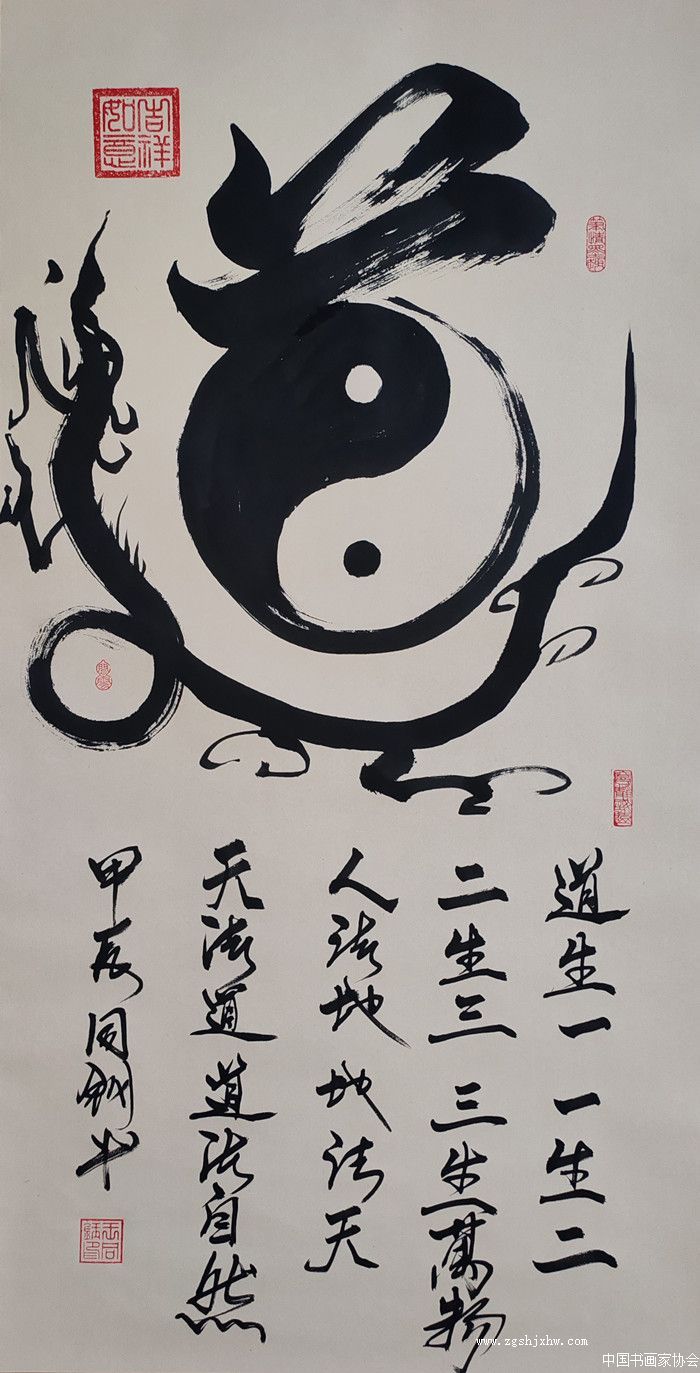 道
吉祥如意
道生一 一生二
二生三 三生萬物
人法地 地法天
天法道 道法自然
甲辰 同 书
www.zgshjxhw.com
中国书画家协会